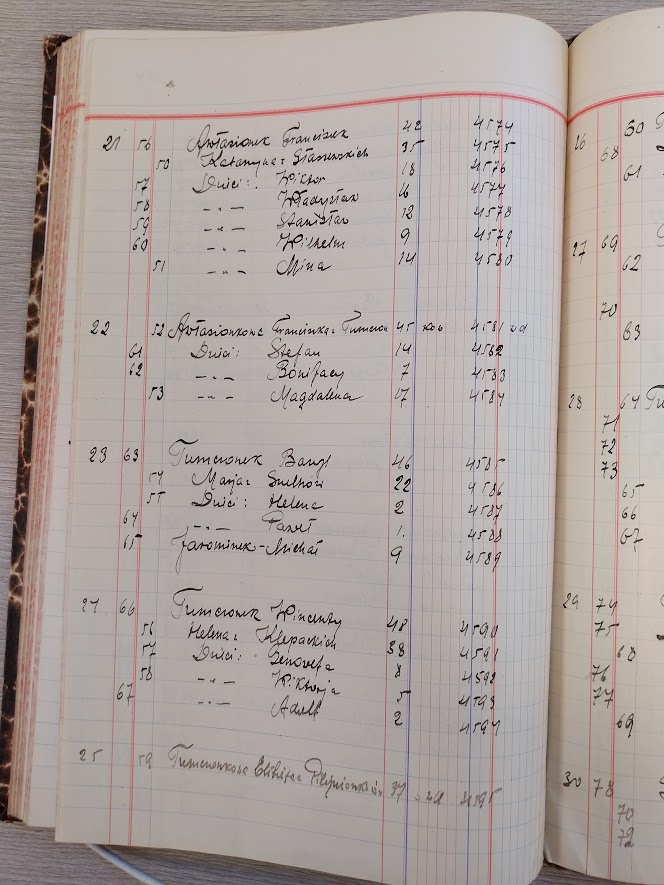 21 56 Awłasionek Franciszek 42 4574
50 Katarzyna z Staszewskich 35 4575
57 Dzieci: Wiktor 18 4576
58 -"- Władysław 16 4577
59 -"- Stanisław 12 4578
60 -"- Wilhelm 9 4579
51 -"- Mina 14 4580
22 52 Awłasionkowa Franciszka z 45 4581
61 Dzieci: Stefan 14 4582
62 -"- Bonifacy 7 4583
53 -"- Magdalena 17 4584
23 63 46 4585
54 Marja z 22 4586
55 Dzieci: Helena 2 4587
64 -"- Paweł 1. 4588
65 Jarominek Michał 9 4589
24 66 Wincenty 48 4590
56 Helena z Klepackich 38 4591
57 Dzieci: Genowefa 8 4592
58 -"- Wiktorja 5 4593
67 -"- Adolf 2 4594
25 59 Elżbieta 37 4595
60
26 68
61
27 69
62
70
63
28 64
71
72
73
65
66
67
29 74
75
68
76
77
69
30 78
70
72